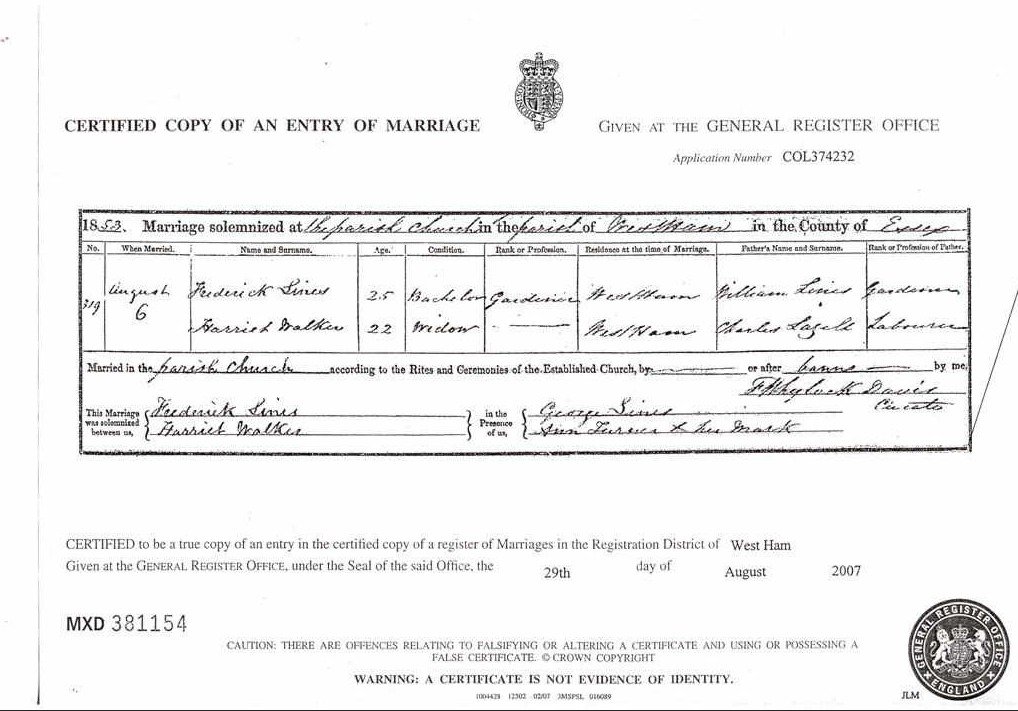 CERTIFIED COPY OF AN ENTRY OF MARRIAGE
GIVEN AT THE GENERAL REGISTER OFFICE
Application Number COL374232
1853. Marriage solemnized at the parish church in the parish of West Ham in the County of Essex
No. When Married. Name and Surname. Age. Condition. Rank or Profession. Residence at the time of Marriage. Father's Name and Surname. Rank or Profession of Father.
319 August 6 Frederick Lines 25 Bachelor Gardener West Ham William Lines Gardener
Harriet Walker 22 Widow — West Ham Charles Lazell Labourer
Married in the parish church according to the Rites and Ceremonies of the Established Church, by — or after banns by me,
Davis
Curate
This Marriage was solemnized between us, Frederick Lines
Harriet Walker
in the Presence of us, George Lines
Ann Turner x her Mark
CERTIFIED to be a true copy of an entry in the certified copy of a register of Marriages in the Registration District of West Ham
Given at the GENERAL REGISTER OFFICE, under the Seal of the said Office, the 29th day of August 2007
MXD 381154
CAUTION: THERE ARE OFFENCES RELATING TO FALSIFYING OR ALTERING A CERTIFICATE AND USING OR POSSESSING A
FALSE CERTIFICATE. © CROWN COPYRIGHT
WARNING: A CERTIFICATE IS NOT EVIDENCE OF IDENTITY.
1004428 12302 02/07 3MSPSL 016089
JLM
GENERAL REGISTER OFFICE
ENGLAND